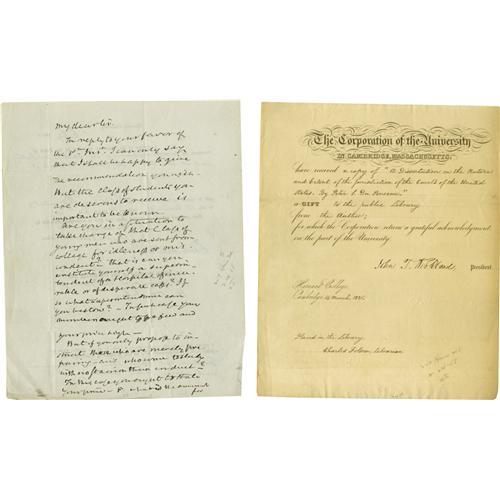 My dear Sir.
In reply to your favor of
the I can only say
that I shall be happy to give
the recommendation you wish
But the class of students you
are desirous to receive is
important to be known.
Are you in a situation to
take charge of that class of
young men who are sent from
college for idleness or mis
conduct? that is can you
institute yourself a superin-
tendent of a hospital of incu-
rable or of desperate cases? If
so what superintendence can
you bestow? - In such case your
ought to be and
your price high -
But if you only propose to in-
struct those who are merely
and who come to study
with no stain on their conduct -
In this case you ought to state
your price -
The Corporation of the University
IN CAMBRIDGE, MASSACHUSETTS,
have received a copy of "A Dissertation on the Nature
and Extent of the Jurisdiction of the Courts of the United
States. By Peter S. Du Ponceau"
a GIFT to the public Library
from the Author;
for which the Corporation return a grateful acknowledgment
on the part of the University.
John T. Kirkland, President.
Harvard College,
Cambridge March
Placed in the Library.
Charles Folsom, Librarian